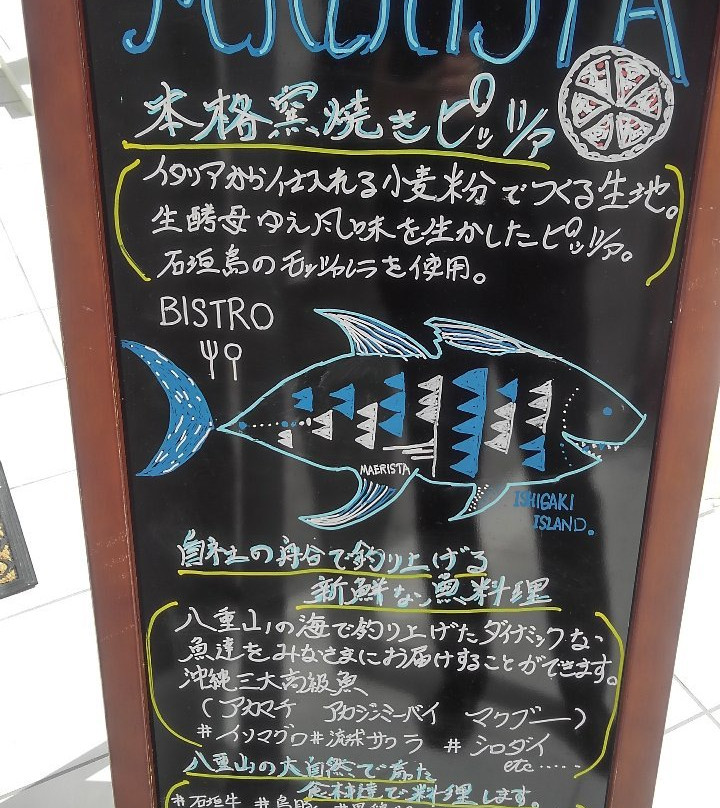 MAERISTA
本格窯焼きピッツァ
イタリアから仕入れる小麦粉でつくる生地。
生酵母ゆえ風味を生かしたピッツァ。
石垣島のモッツァレラを使用。
BISTRO
MAERISTA
ISHIGAKI
ISLAND.
自社の船台で釣り上げる
新鮮な魚料理
八重山の海で釣り上げたダイナミックな
魚達をみなさまにお届けすることができます。
沖縄三大高級魚
(アカマチ アカジンミーバイ マクブー)
#イソマグロ #流球サワラ #シロダイ
etc.....
八重山の大自然で育った
食材達で料理します。
#石垣牛 #島豚